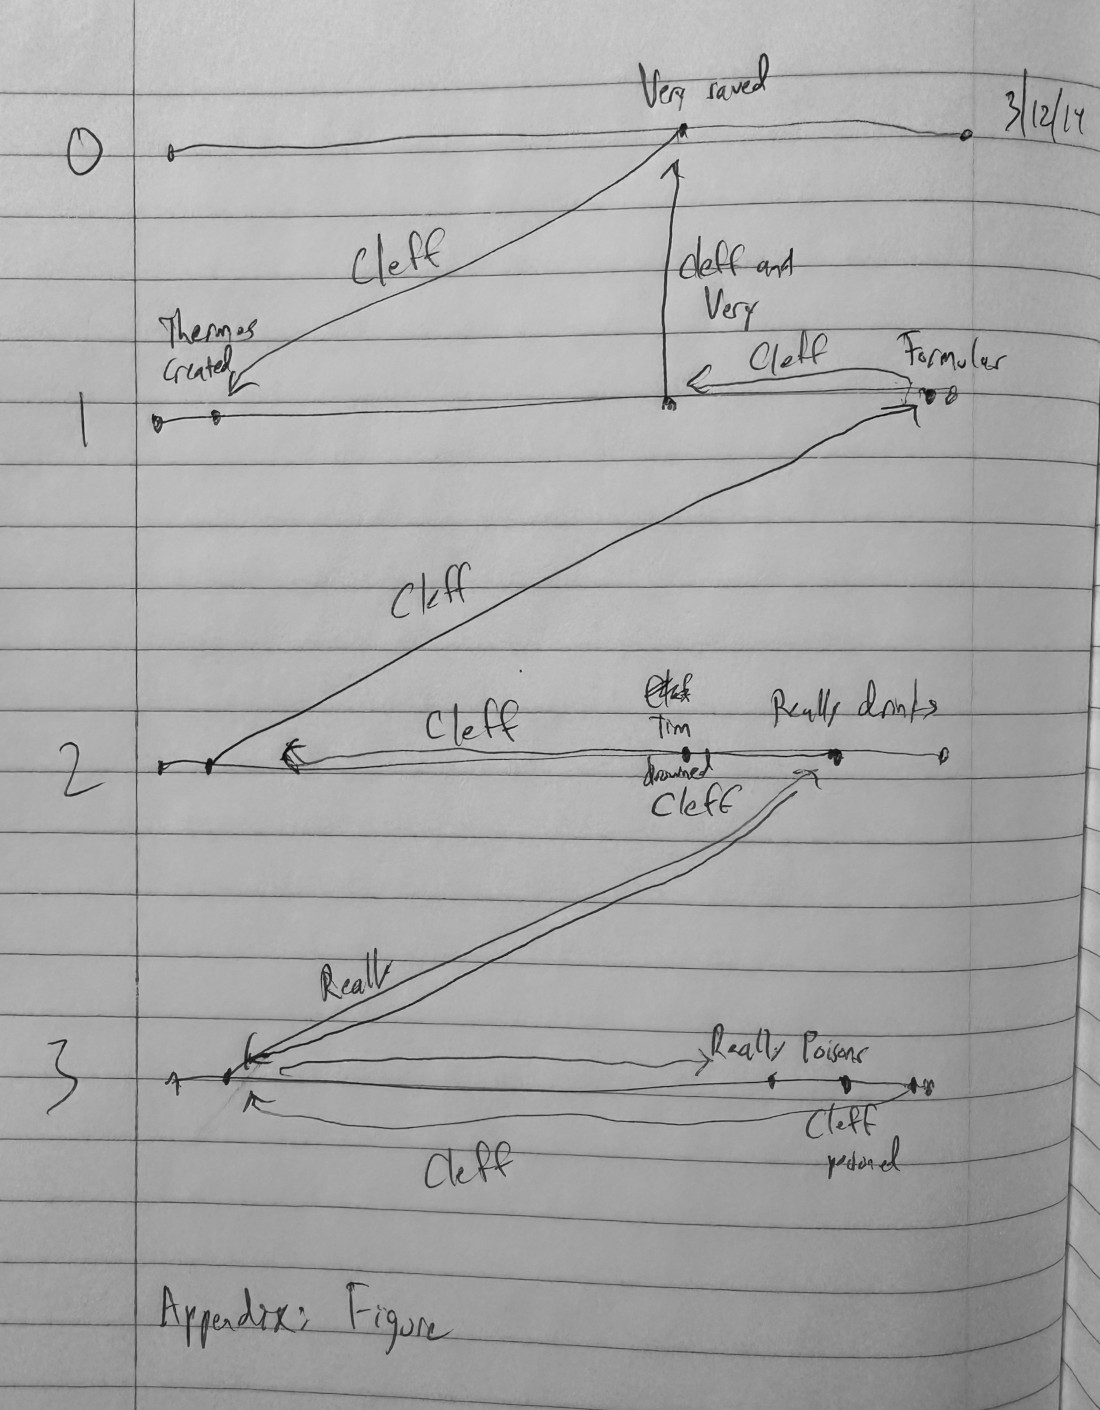 Very saved
3/12/14
0
Cleff
Cleff and
Very
Thermos
Created
Cleff
Formular
1
Cleff
Really drinks
Tim
Cleff
2
drowned
Cleff
Really
Really Poisons
3
Cleff
Cleff
Appendix: Figure